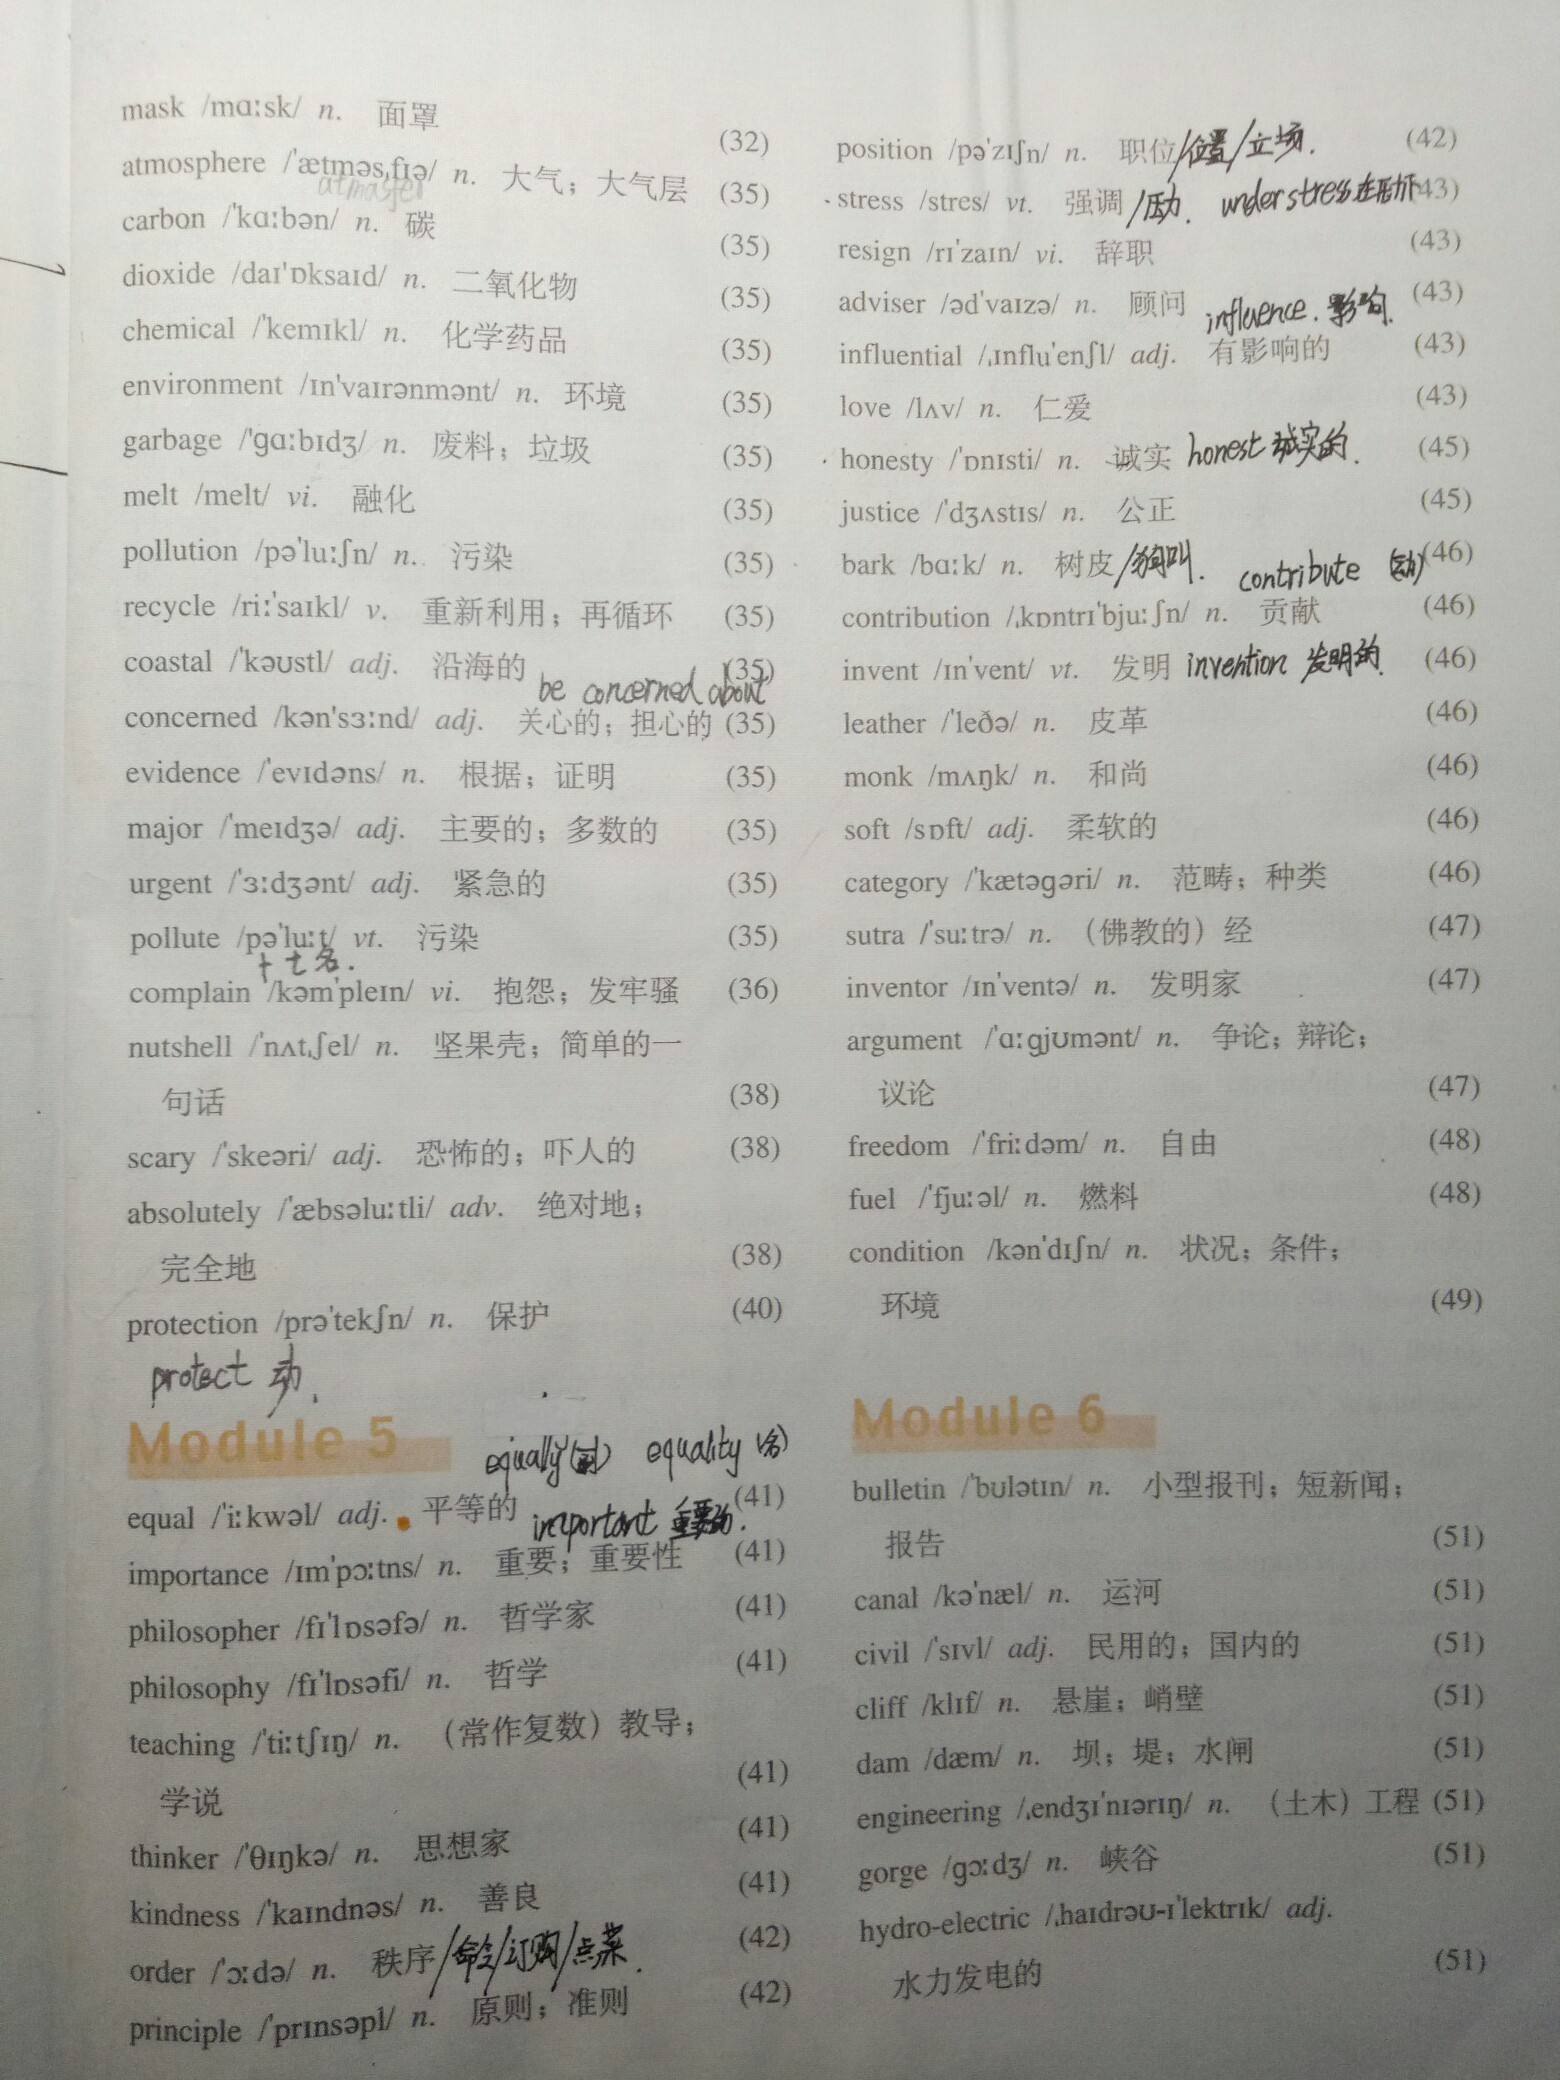 mask /mɑːsk/ n. 面罩 (32)
atmosphere /ˈætməsˌfɪə/ n. 大气；大气层 (35)
carbon /ˈkɑːbən/ n. 碳 (35)
dioxide /daɪˈɒksaɪd/ n. 二氧化物 (35)
chemical /ˈkemɪkl/ n. 化学药品 (35)
environment /ɪnˈvaɪrənmənt/ n. 环境 (35)
garbage /ˈɡɑːbɪdʒ/ n. 废料；垃圾 (35)
melt /melt/ vi. 融化 (35)
pollution /pəˈluːʃn/ n. 污染 (35)
recycle /riːˈsaɪkl/ v. 重新利用；再循环 (35)
coastal /ˈkəʊstl/ adj. 沿海的 (35)
be concerned about
concerned /kənˈsɜːnd/ adj. 关心的；担心的 (35)
evidence /ˈevɪdəns/ n. 根据；证明 (35)
major /ˈmeɪdʒə/ adj. 主要的；多数的 (35)
urgent /ˈɜːdʒənt/ adj. 紧急的 (35)
pollute /pəˈluːt/ vt. 污染 (35)
complain /kəmˈpleɪn/ vi. 抱怨；发牢骚 (36)
nutshell /ˈnʌtˌʃel/ n. 坚果壳；简单的一
句话 (38)
scary /ˈskeəri/ adj. 恐怖的；吓人的 (38)
absolutely /ˈæbsəluːtli/ adv. 绝对地；
完全地 (38)
protection /prəˈtekʃn/ n. 保护 (40)
protect 动.
Module 5
equally (副) equality (名)
equal /ˈiːkwəl/ adj. 平等的 (41)
important 重要的.
importance /ɪmˈpɔːtns/ n. 重要；重要性 (41)
philosopher /fɪˈlɒsəfə/ n. 哲学家 (41)
philosophy /fɪˈlɒsəfi/ n. 哲学 (41)
teaching /ˈtiːtʃɪŋ/ n. （常作复数）教导；
学说 (41)
thinker /ˈθɪŋkə/ n. 思想家 (41)
kindness /ˈkaɪndnəs/ n. 善良 (41)
order /ˈɔːdə/ n. 秩序/命令/订购/点菜. (42)
principle /ˈprɪnsəpl/ n. 原则；准则 (42)
position /pəˈzɪʃn/ n. 职位/位置/立场. (42)
stress /stres/ vt. 强调/压力. under stress 在压力下 (43)
resign /rɪˈzaɪn/ vi. 辞职 (43)
adviser /ədˈvaɪzə/ n. 顾问 (43)
influence. 影响.
influential /ˌɪnfluˈenʃl/ adj. 有影响的 (43)
love /lʌv/ n. 仁爱 (43)
honesty /ˈɒnɪsti/ n. 诚实 honest 诚实的. (45)
justice /ˈdʒʌstɪs/ n. 公正 (45)
bark /bɑːk/ n. 树皮/狗叫. (46)
contribute (动)
contribution /ˌkɒntrɪˈbjuːʃn/ n. 贡献 (46)
invent /ɪnˈvent/ vt. 发明 invention 发明的. (46)
leather /ˈleðə/ n. 皮革 (46)
monk /mʌŋk/ n. 和尚 (46)
soft /sɒft/ adj. 柔软的 (46)
category /ˈkætəɡəri/ n. 范畴；种类 (46)
sutra /ˈsuːtrə/ n. （佛教的）经 (47)
inventor /ɪnˈventə/ n. 发明家 (47)
argument /ˈɑːɡjʊmənt/ n. 争论；辩论；
议论 (47)
freedom /ˈfriːdəm/ n. 自由 (48)
fuel /ˈfjuːəl/ n. 燃料 (48)
condition /kənˈdɪʃn/ n. 状况；条件；
环境 (49)
Module 6
bulletin /ˈbʊlətɪn/ n. 小型报刊；短新闻；
报告 (51)
canal /kəˈnæl/ n. 运河 (51)
civil /ˈsɪvl/ adj. 民用的；国内的 (51)
cliff /klɪf/ n. 悬崖；峭壁 (51)
dam /dæm/ n. 坝；堤；水闸 (51)
engineering /ˌendʒɪˈnɪərɪŋ/ n. （土木）工程 (51)
gorge /ɡɔːdʒ/ n. 峡谷 (51)
hydro-electric /ˌhaɪdrəʊ-ɪˈlektrɪk/ adj.
水力发电的 (51)